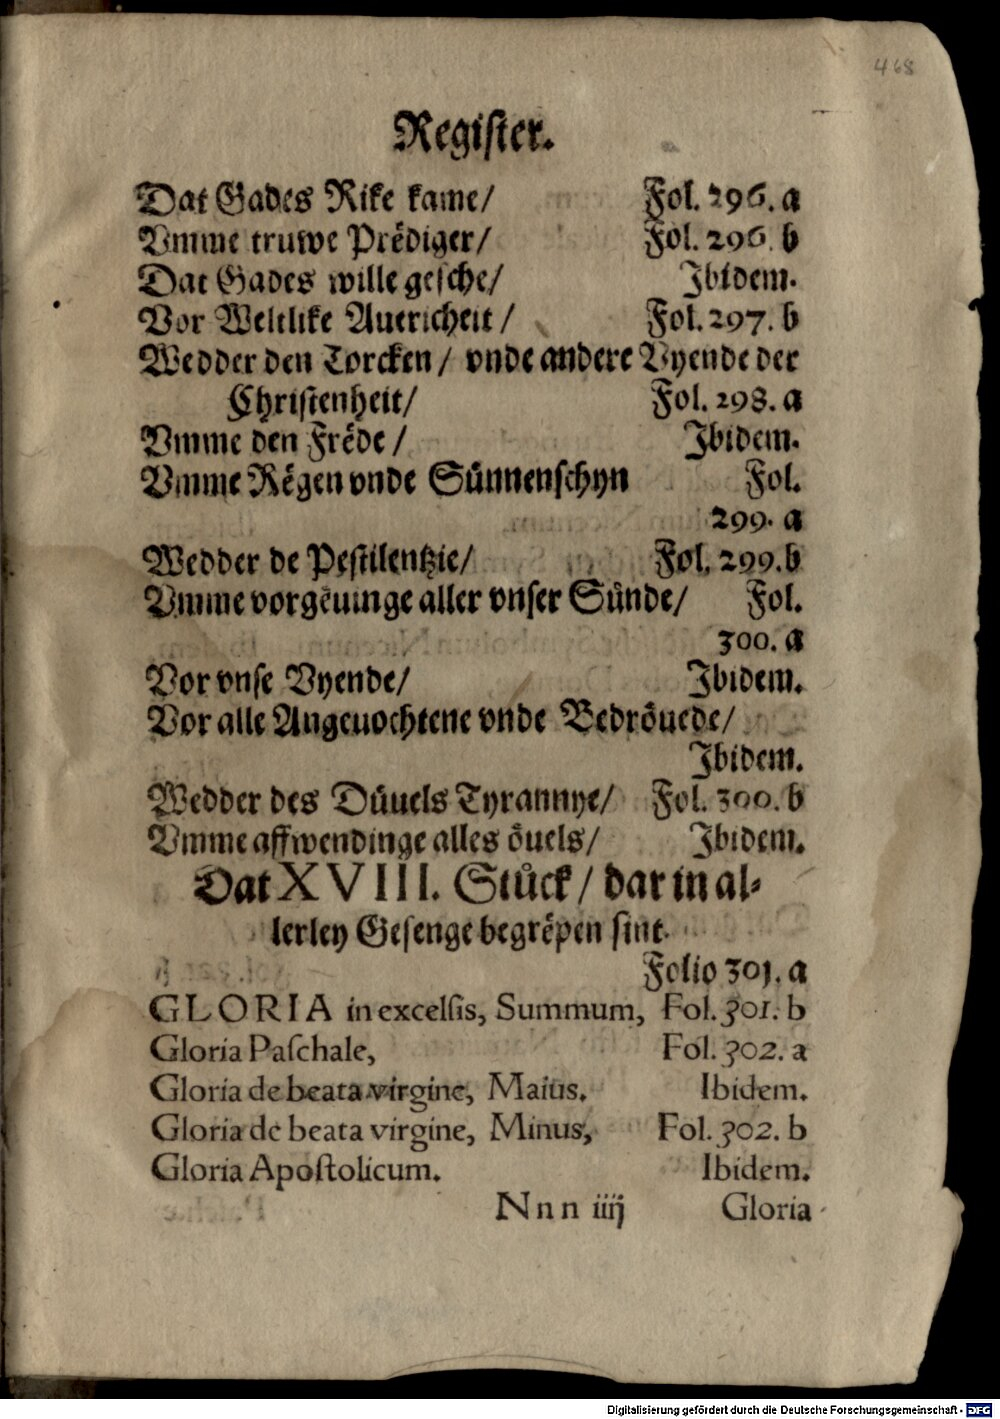 468
Register.
Dat Gades Rike kame/ Fol. 296. a
Vmme truwe Prëdiger/ Fol. 296. b
Dat Gades wille gesche/ Ibidem.
Vor Weltlike Auericheit / Fol. 297. b
Wedder den Torcken / vnde andere Vyende der
Christenheit/ Fol. 298. a
Vmme den Frëde / Ibidem.
Vmme Rëgen vnde Sünnenschyn Fol.
299. a
Wedder de Pestilentzie/ Fol. 299. b
Vmme vorgëuinge aller vnser Sünde/ Fol.
300. a
Vor vnse Vyende/ Ibidem.
Vor alle Angeuochtene vnde Bedröuede/
Ibidem.
Wedder des Düuels Tyrannye/ Fol. 300. b
Vmme affwendinge alles öuels/ Ibidem.
Dat XVIII. Stück / dar in al-
lerley Gesenge begrëpen sint.
Folio 301. a
GLORIA in excelsis, Summum, Fol. 301. b
Gloria Paschale, Fol. 302. a
Gloria de beata virgine, Maius. Ibidem.
Gloria de beata virgine, Minus, Fol. 302. b
Gloria Apostolicum. Ibidem.
Nnn iiij Gloria
Digitalisierung gefördert durch die Deutsche Forschungsgemeinschaft - DFG